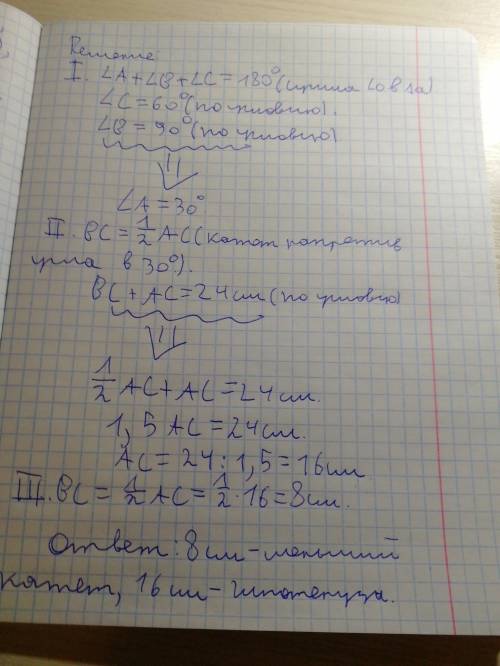 Решение
I. ∠A+∠B+∠C=180° (сумма ∠ в Δ)
∠C=60° (по условию).
∠B=90° (по условию)
∠A=30°
II. BC=1/2 AC (катет напротив
угла в 30°).
BC+AC=24см (по условию)
1/2 AC+AC=24см.
1,5 AC=24см.
AC=24:1,5=16см
III. BC=1/2 AC=1/2·16=8см.
Ответ: 8см-меньший
катет, 16см-гипотенуза.